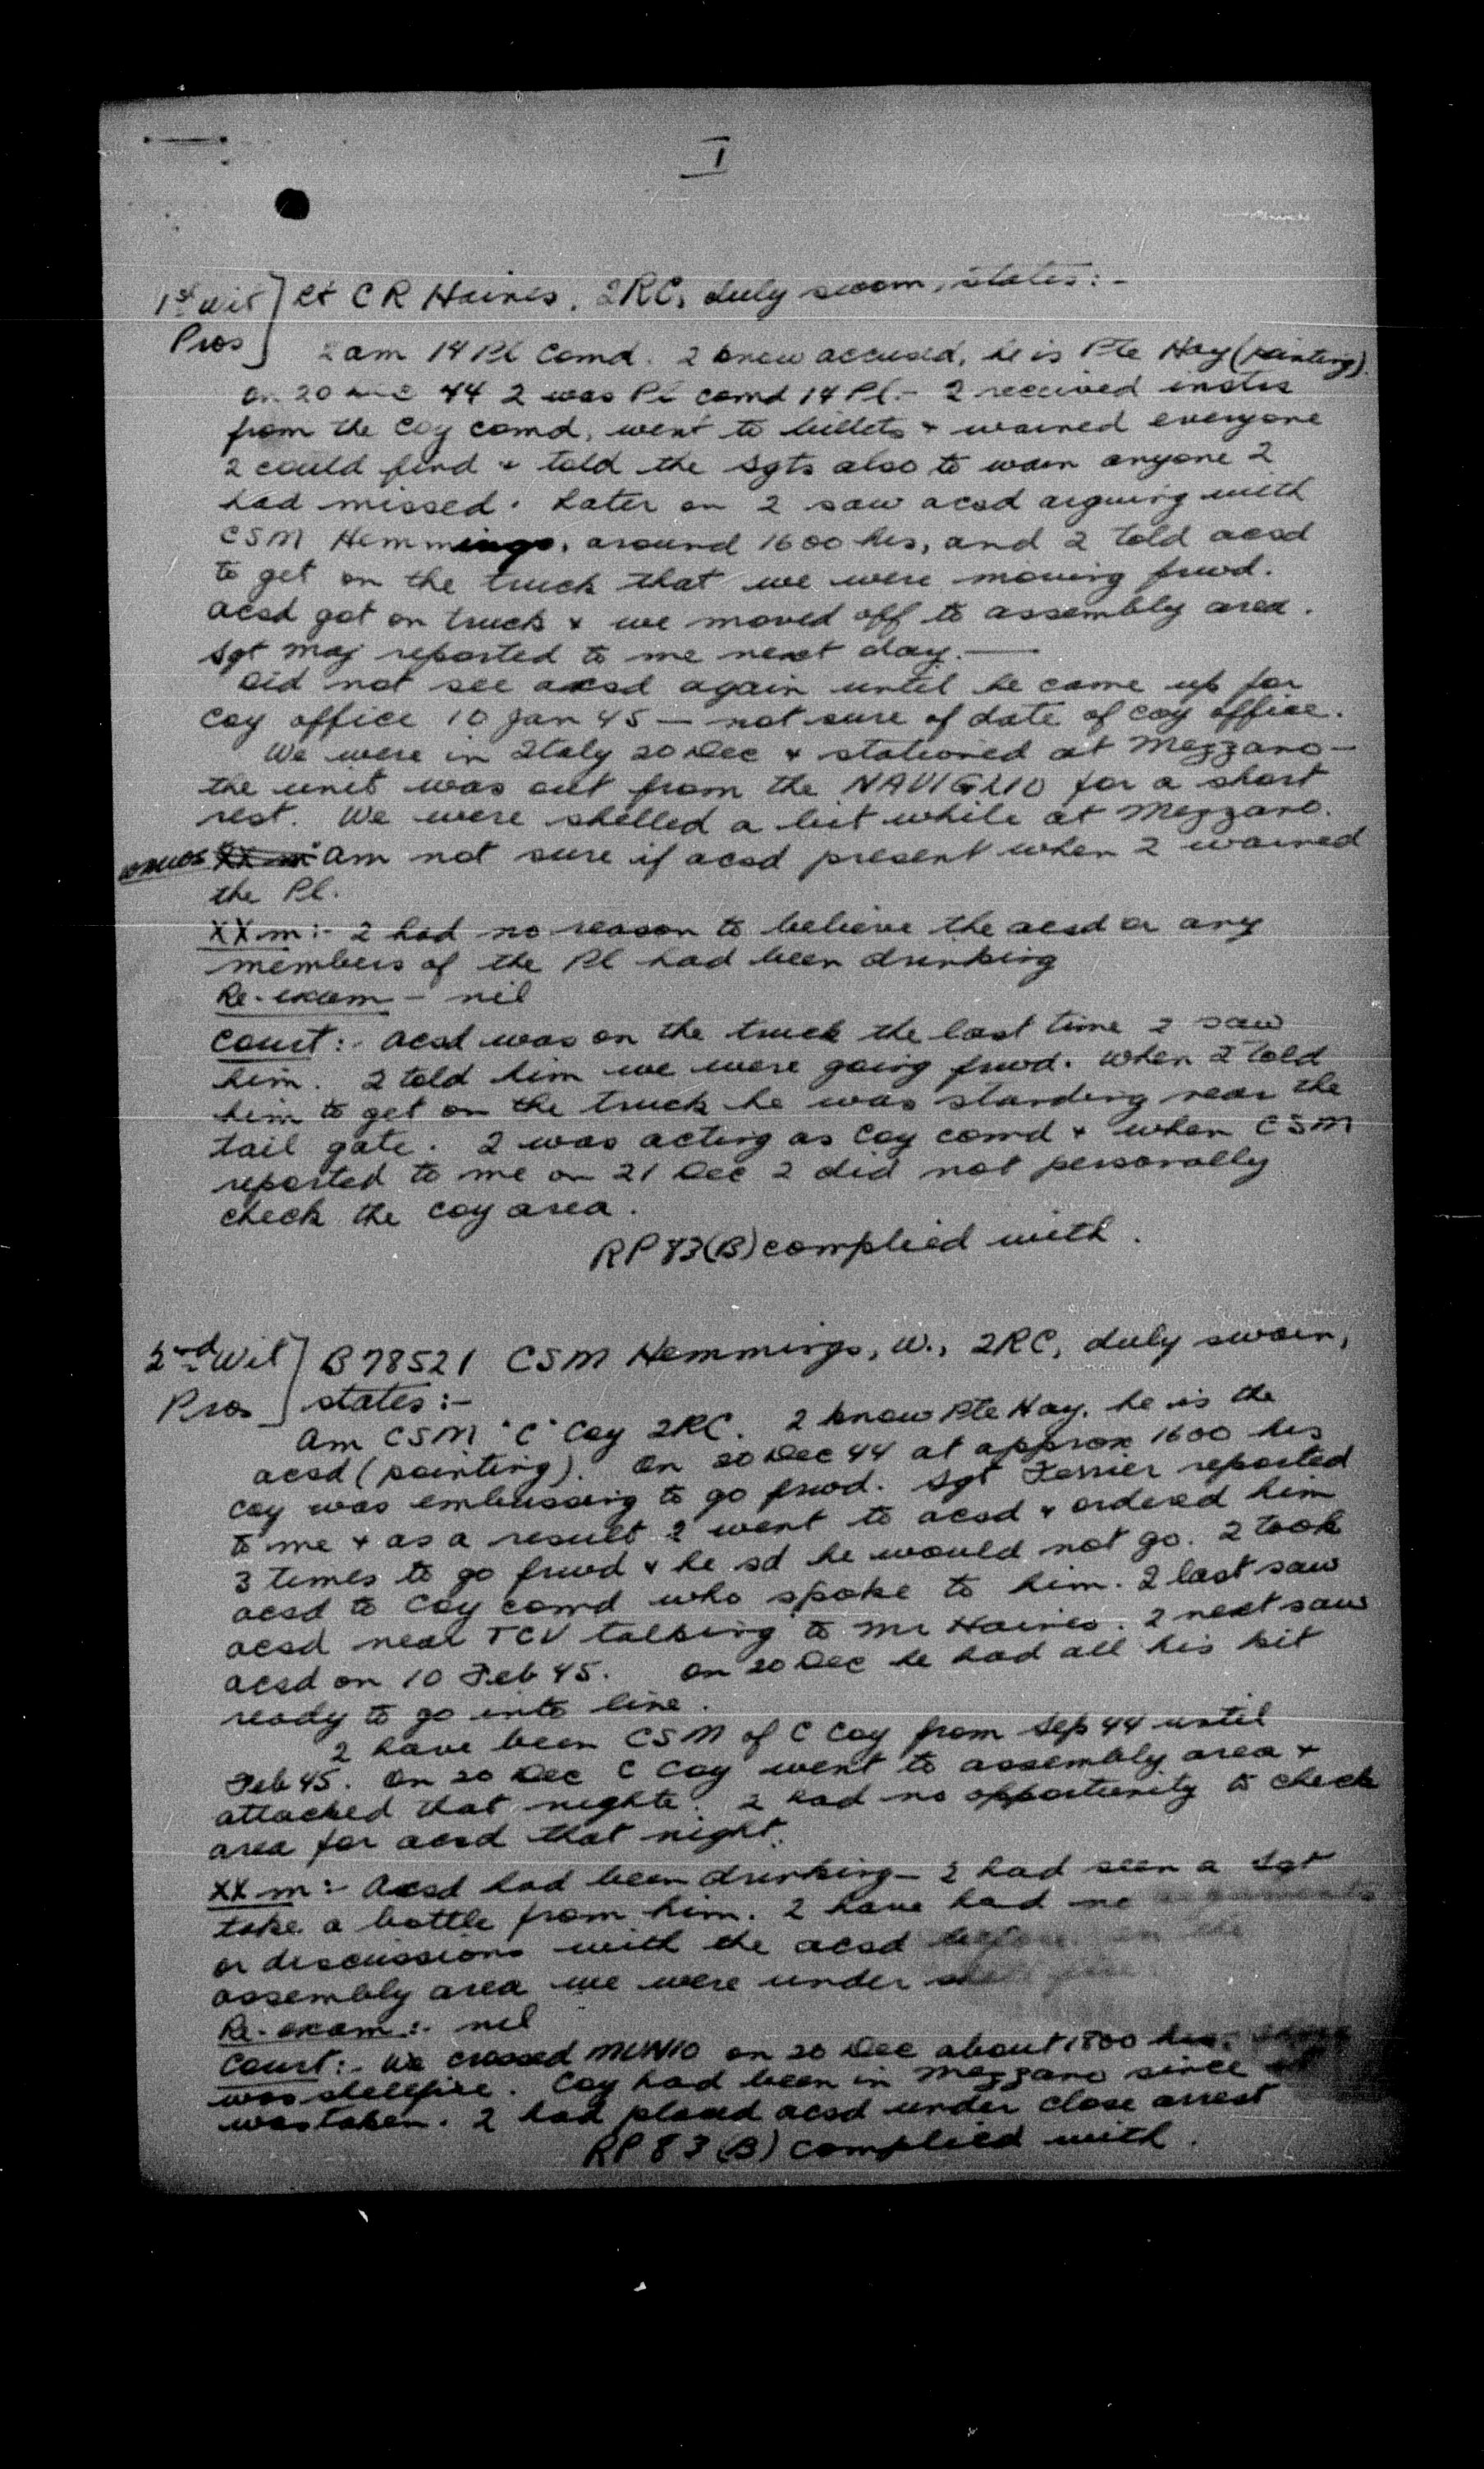 I
1st Wit Pros ] Lt C R Haines, 2RC, duly sworn, states:-
I am 14 Pl Comd. I know accused, he is Pte Hay (pointing).
On 20 Dec 44 I was Pl comd 14 Pl.- I received instrs
from the Coy comd, went to billets + warned everyone
I could find + told the Sgts also to warn anyone I
had missed. Later on I saw acsd arguing with
CSM Hemmings, around 1600 hrs, and I told acsd
to get on the truck that we were moving frwd.
Acsd got on truck + we moved off to assembly area.
Sgt Maj reported to me next day.—
Did not see acsd again until he came up for
Coy office 10 Jan 45 — not sure of date of coy office.
We were in Italy 20 Dec + stationed at Mezzano —
the unit was out from the NAVIGLIO for a short
rest. We were shelled a bit while at Mezzano.
Am not sure if acsd present when I warned
the Pl.
XXm:- I had no reason to believe the acsd or any
members of the Pl had been drinking
Re-exam - nil
Court:- Acsd was on the truck the last time I saw
him. I told him we were going frwd. When I told
him to get on the truck he was standing near the
tail gate. I was acting as Coy comd + when CSM
reported to me on 21 Dec I did not personally
check the coy area.
RP 83(B) complied with.
2nd Wit Pros ] B78521 CSM Hemmings, W., 2RC, duly sworn,
states:-
Am CSM "C" Coy 2RC. I know Pte Hay. he is the
acsd (pointing). On 20 Dec 44 at approx 1600 hrs
coy was embussing to go frwd. Sgt Ferrier reported
to me + as a result I went to acsd + ordered him
3 times to go frwd + he sd he would not go. I took
acsd to Coy comd who spoke to him. I last saw
acsd near TCV talking to Mr Haines. I next saw
acsd on 10 Feb 45. On 20 Dec he had all his kit
ready to go into line.
I have been CSM of C Coy from Sep 44 until
Feb 45. On 20 Dec C Coy went to assembly area +
attacked that nighte. I had no opportunity to check
area for acsd that night.
XXm:- Acsd had been drinking - I had seen a Sgt
take a bottle from him. I have had no arguments
or discussions with the acsd before. In the
assembly area we were under shell fire.
Re-exam:- nil
Court:- We crossed MUNIO on 20 Dec about 1800 hrs. There
was shellfire. Coy had been in Mezzano since it
was taken. I had placed acsd under close arrest
RP 83 (B) complied with.